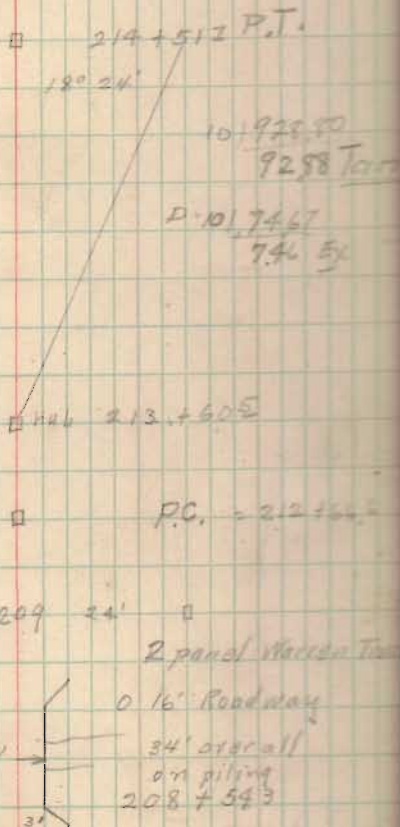 214 + 517 P.T.
18° 24'
10 | 928.80
92 88 Tan
D·10 | 74.67
7.46 Ex
hub 213 + 60 5
P.C. = 212 + 66
209 24'
2 panel Warren
0 16' Roadway
34' overall
on piling
208 + 543
3'